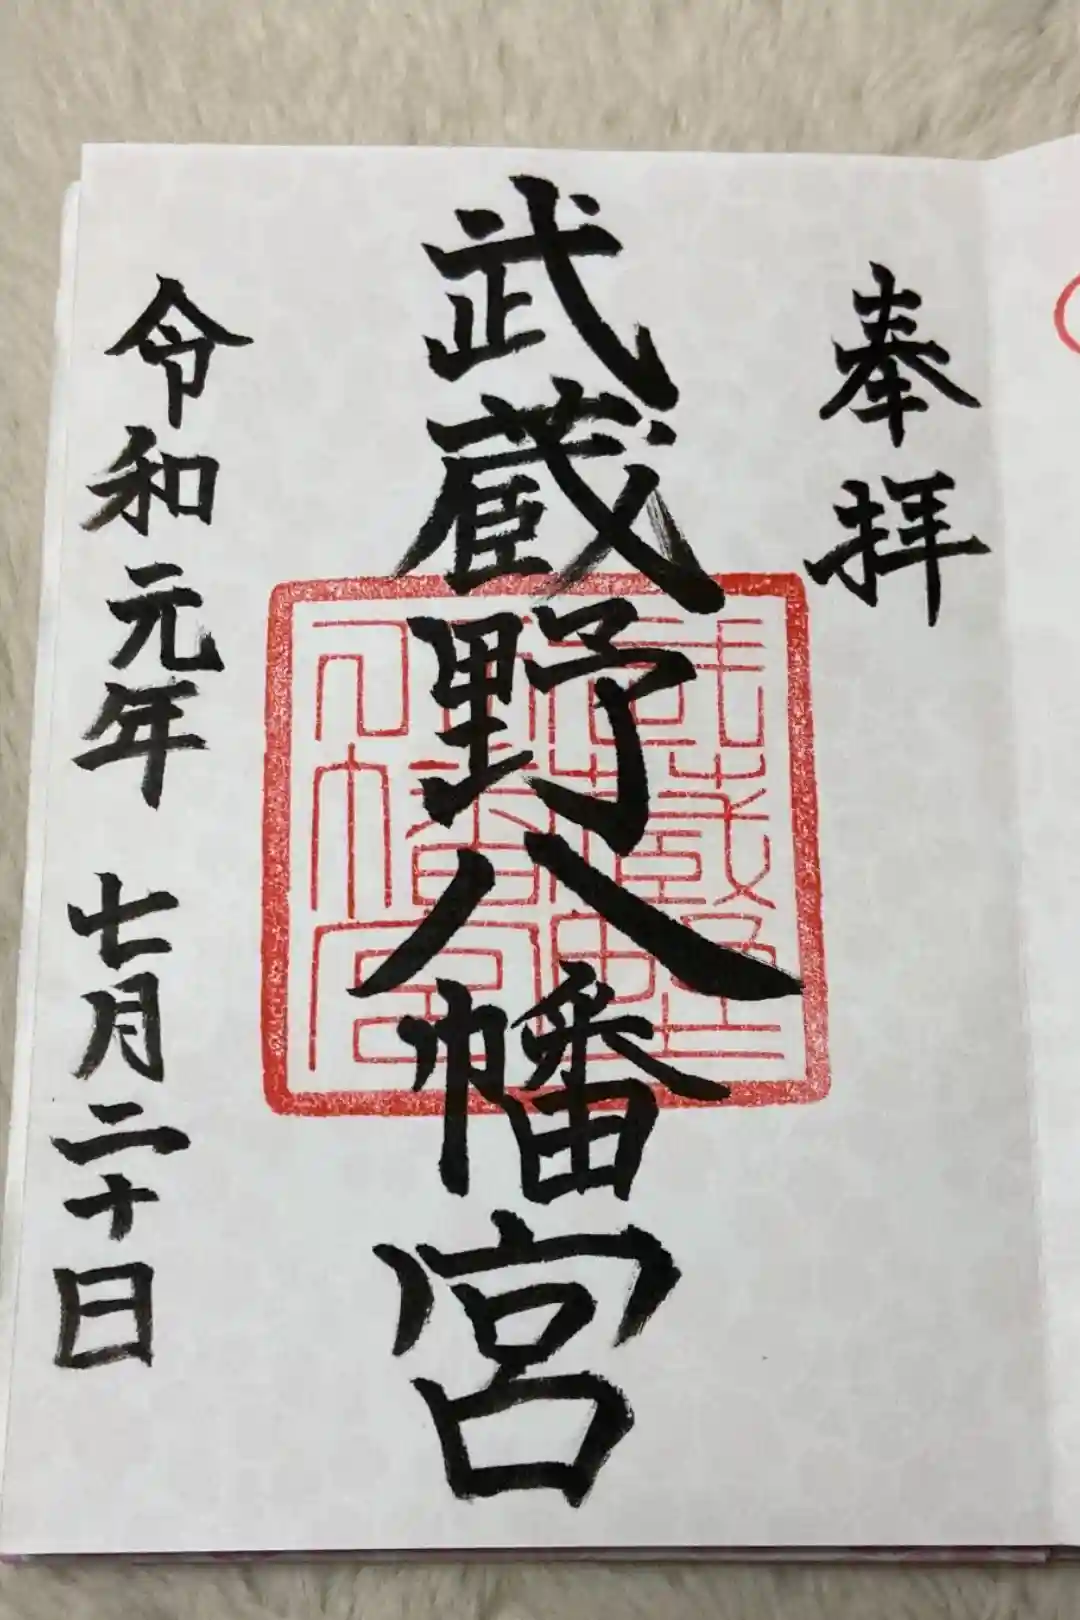 奉拝
武蔵野八幡宮
武蔵野八幡宮
令和元年 七月二十日